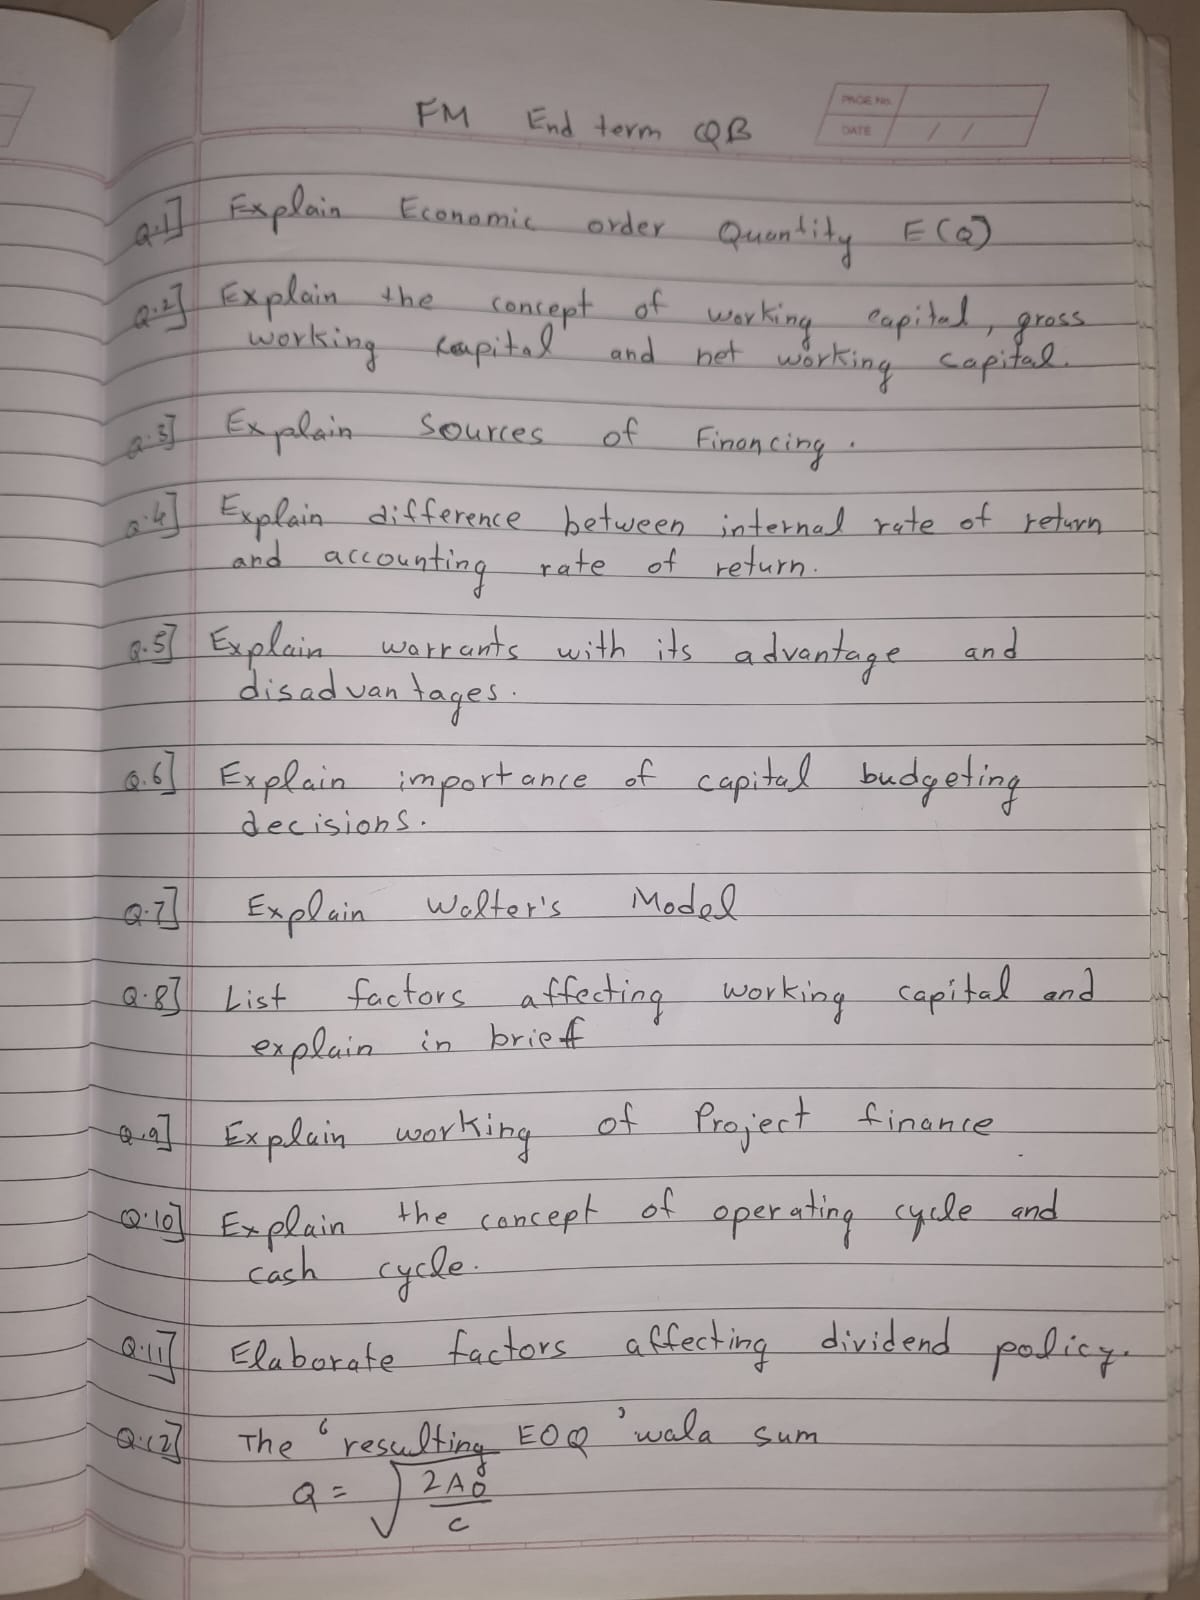 PAGE No.
DATE / /
FM End term QB
Q.1] Explain Economic order Quantity E(Q)
Q.2] Explain the concept of working capital, gross
working capital and net working capital.
Q.3] Explain Sources of Financing.
Q.4] Explain difference between internal rate of return
and accounting rate of return.
Q.5] Explain warrants with its advantage and
disadvantages.
Q.6] Explain importance of capital budgeting
decisions.
Q.7] Explain Walter's Model
Q.8] List factors affecting working capital and
explain in brief
Q.9] Explain working of Project finance
Q.10] Explain the concept of operating cycle and
cash cycle.
Q.11] Elaborate factors affecting dividend policy.
Q.12] The 'resulting EOQ' wala sum
Q = √2AO
c